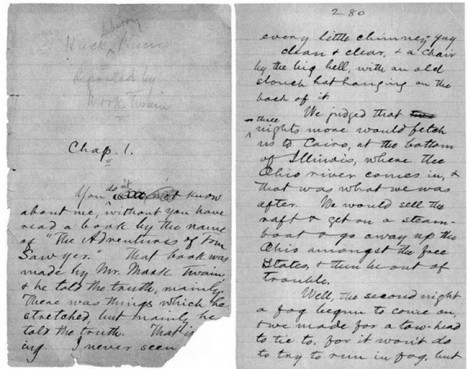 Huck Finn
reported by
Mark Twain
Chap. 1.
You do n't know
about me, without you have
read a book by the name
of "The Adventures of Tom
Sawyer." That book was
made by Mr. Mark Twain
& he told the truth, mainly.
There was things which he
stretched, but mainly he
told the truth. That is
ing. I never seen
280
every little chimney-guy
clean & clear, & a chair
by the big bell, with an old
slouch hat hanging on the
back of it.
We judged that three
nights more would fetch
us to Cairo, at the bottom
of Illinois, where the
Ohio river comes in, &
that was what we was
after. We would sell the
raft & get on a steam-
boat & go away up the
Ohio amongst the free
States, & then be out of
trouble.
Well, the second night
a fog begun to come on,
& we made for a tow-head
to tie to, for it won't do
to try to run in fog, but